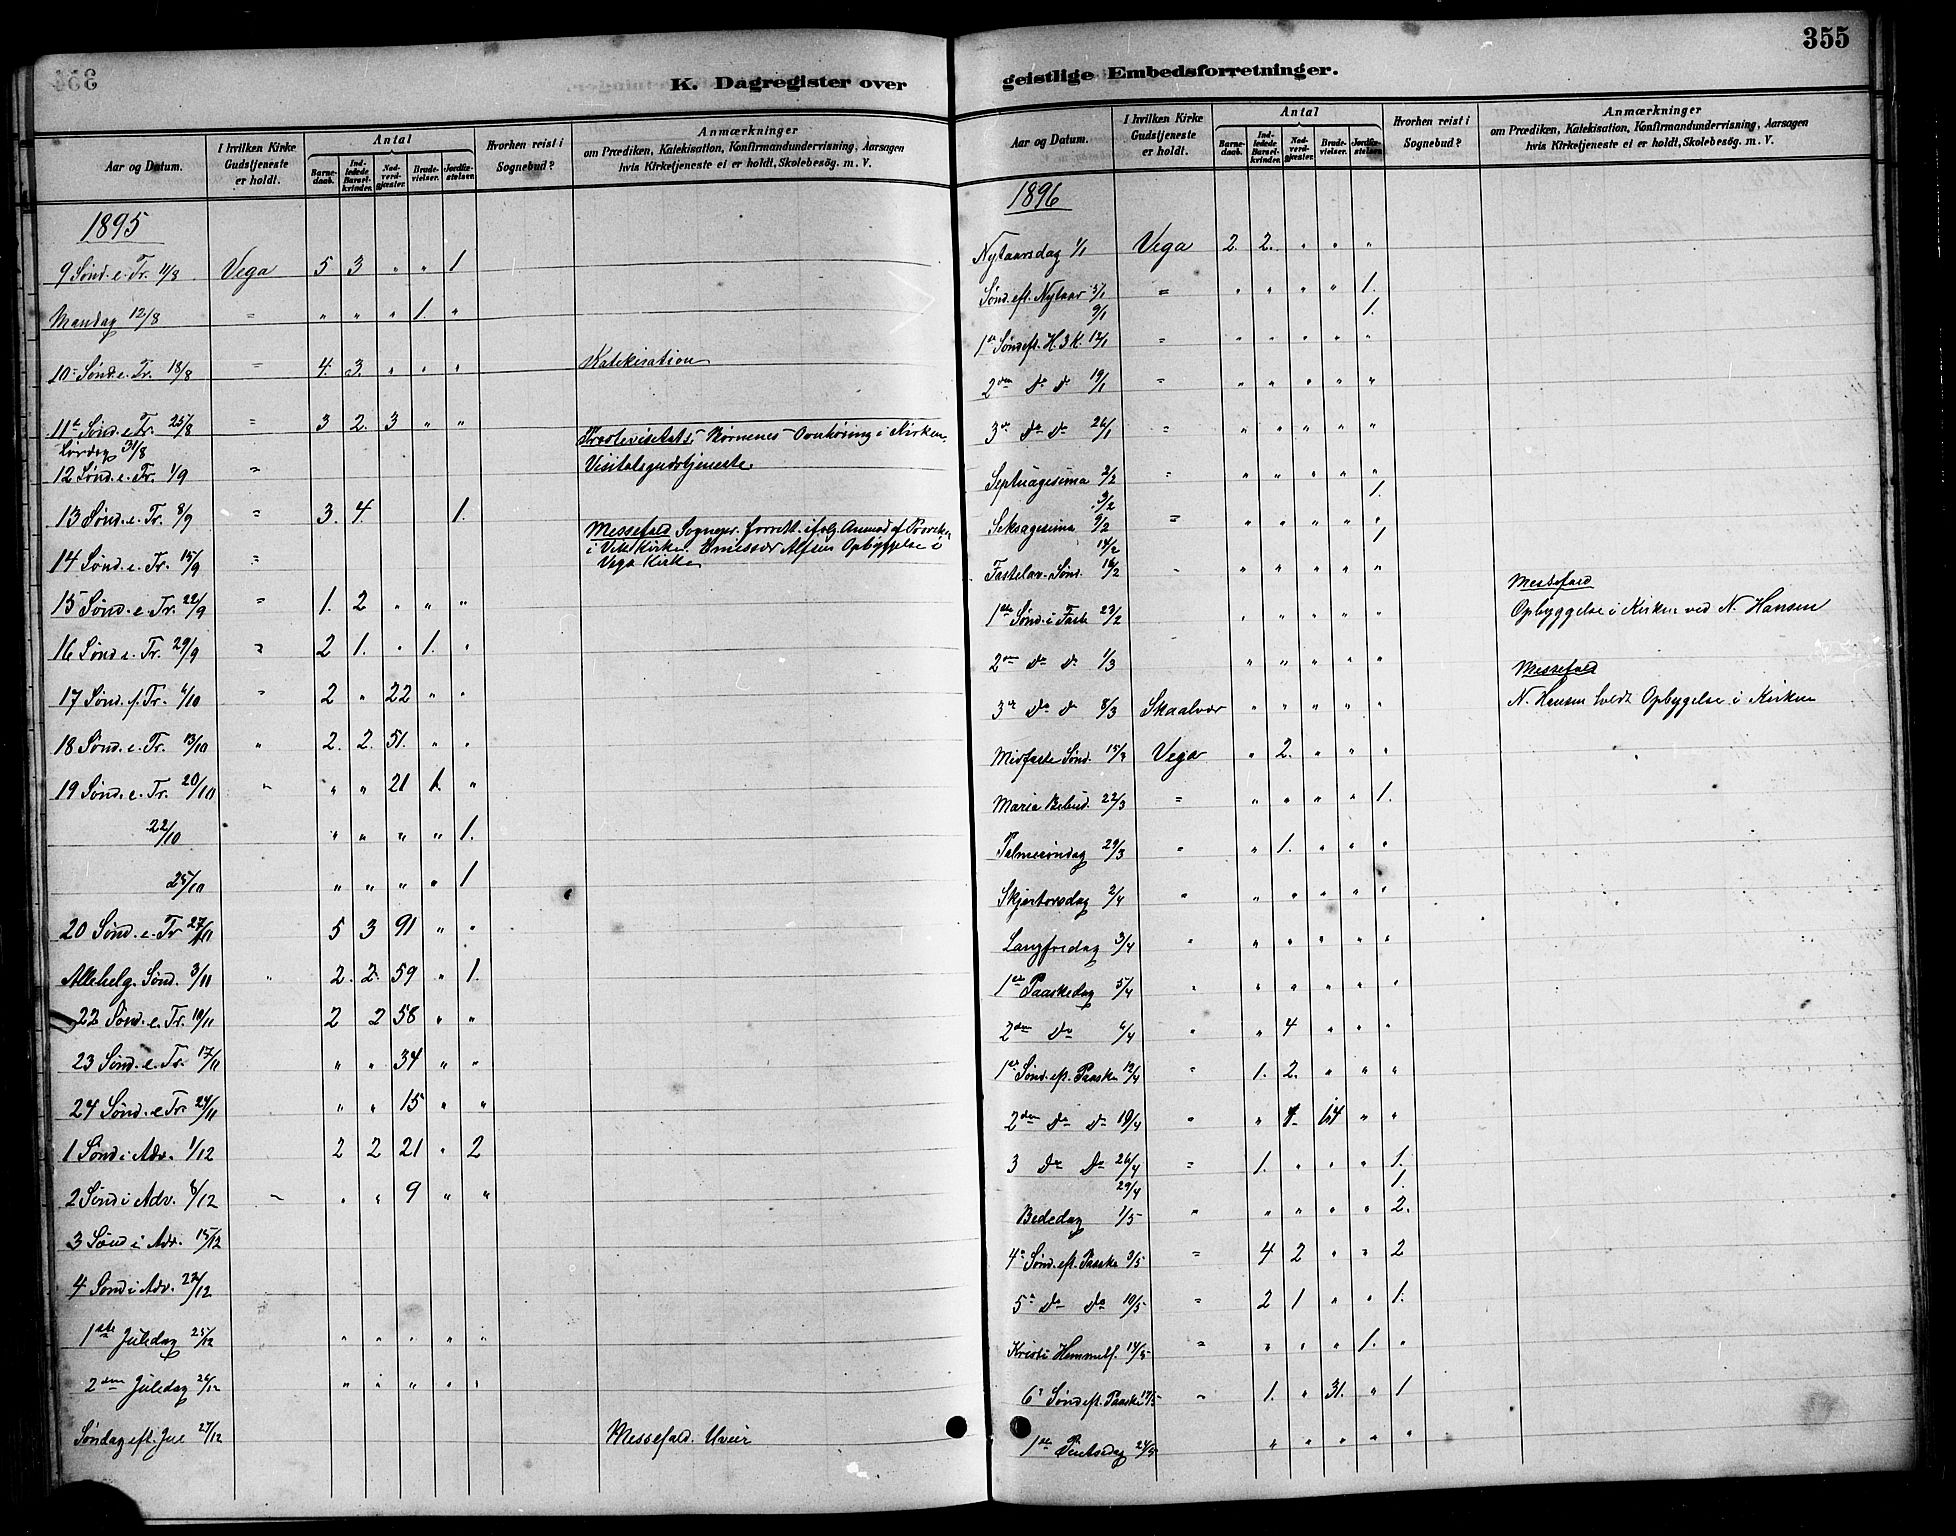 354
K. Dagregister over
Aar og Datum.
I hvilken Kirke Gudstjeneste er holdt.
Antal
Barnedaab.
Indledede Barselkvinder.
Nadverdgjæster.
Brudevielser.
Jordfæstelser.
Hvorhen reist i Sognebud?
Anmærkninger
om Prædiken, Katekisation, Konfirmandundervisning, Aarsagen
hvis Kirketjeneste ei er holdt, Skolebesög. m. V.
1895
9 Sønd. e. Tr. 11/8 Vega 5 3 " " 1
Mandag 12/8 = " " " 1. "
10 Sønd. e. Tr. 18/8 = 4. 3. " " " Katekisation
11te Sønd. e. Tr. 25/8 = 3 2. 3 " "
Lørdag 31/8 Børnenes Overhøring i Kirken.
12 Sønd. e. Tr. 1/9 = Visitatsgudstjeneste.
13 Sønd. e. Tr. 8/9 = 3. 4 1.
Messefald Sognepr. forrett. ifølg. Anmod. af Provsten
14 Sønd. e. Tr. 15/9 = i Vik Kirke. Emissær Alfsen Opbyggelse i
Vega Kirke
15 Sønd. e. Tr. 22/9 = 1. 2 " " "
16 Sønd. e. Tr. 29/9 = 2 1. " 1. "
17 Sønd. f. Tr. 6/10 " 2 " 22 " "
18 Sønd. e. Tr. 13/10 " 2. 2. 51. " "
19 Sønd. e. Tr. 20/10 " " " 21 1. "
22/10 " " " " 1.
25/10 " " " " 1
20 Sønd. e. Tr 27/11 5 3 91 " "
Allehelg. Sønd. 3/11 " 2. 2. 59 " 1.
22 Sønd. e. Tr. 10/11 2 2 58 " "
23 Sønd. e. Tr. 17/11 " " 34 " "
24 Sønd. e Tr. 24/11 " " 15 " "
1 Sønd i Adv. 1/12 2 2 21 " 2
2 Sønd i Adv. 8/12 " " " 9 " "
3 Sønd i Adv. 15/12
4 Sønd i Adv. 22/12
1ste Juledag 25/12 " " " " "
2den Juledag 26/12 " " " " "
Søndag eft. Jul 27/12 Messefald. Uveir
355
geistlige Embedsforretninger.
Aar og Datum.
I hvilken Kirke Gudstjeneste er holdt.
Antal
Barnedaab.
Indledede Barselkvinder.
Nadverdgjæster.
Brudevielser.
Jordfæstelser.
Hvorhen reist i Sognebud?
Anmærkninger
om Prædiken, Katekisation, Konfirmandundervisning, Aarsagen
hvis Kirketjeneste ei er holdt, Skolebesög. m. V.
1896
Nytaarsdag 1/1 Vega 2. 2. " " "
Sønd. eft. Nytaar 5/1 = " " " " 1.
9/1 1.
1ste Sønd eft. H. 3 K. 12/1 = " " " " "
2den do do 19/1 = " " " " "
3de do do 26/1 = " " " " "
Septuagesima 2/2 = " " " " "
3/2 1.
Seksagesima 9/2 = " " " " "
14/2 1
Fastelav. Sønd. 16/2 " " " " " "
Messefald
1ste Sønd. i Faste 23/2 " " " " " Opbyggelse i Kirken ved N. Hansen
2den do do 1/3 " " " " " Messefald
3de do do 8/3 Skaalvær " " " " " N. Hansen holdt Opbygelse i Kirken
Midfaste Sønd. 15/3 Vega " 2. " " "
Maria Bebud. 22/3 = " " " " 1.
Palmesøndag 29/3 " " 1. " " "
Skjærtorsdag 2/4 " " " " " "
Langfredag 3/4 " " " " " "
1ste Paaskedag 5/4 " " " " " "
2den do 6/4 " " 4 " " "
1ste Sønd. eft. Paaske 12/4 " 1. 2. " " "
2den do do 19/4 " " 14 " "
3 do do 26/4 = 1. " " " 1.
29/4 1.
Bededag 1/5 " " " " " 2.
4de Sønd. eft. Paaske 3/5 = 4 2 " " 2
5te do do 10/5 " 2 1 " " 1.
Kristi Himmelf. 14/5 " " " " 1. "
6te Sønd eft. Paaske 17/5 " 1. " 31. " 1
1ste Pintsedag 24/5 " " " " "